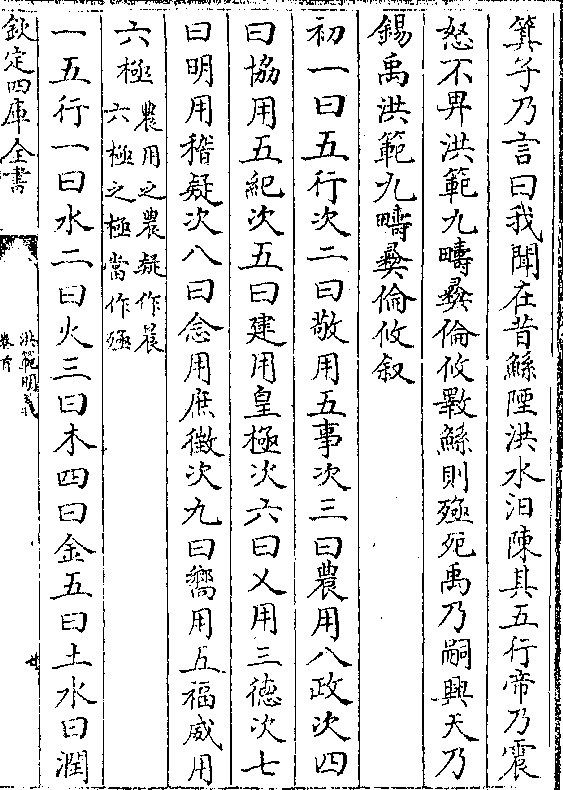 箕子乃言曰我聞在昔鯀陻洪水汩陳其五行帝乃震
怒不畀洪範九疇彝倫攸斁鯀則殛死禹乃嗣興天乃
錫禹洪範九疇彝倫攸叙
初一曰五行次二曰敬用五事次三曰農用八政次四
曰協用五紀次五曰建用皇極次六曰乂用三德次七
曰明用稽疑次八曰念用庶徵次九曰嚮用五福威用
六極
農用之農疑作晨
六極之極當作殛
一五行一曰水二曰火三曰木四曰金五曰土水曰潤
欽定四庫全書
洪範明義
卷首